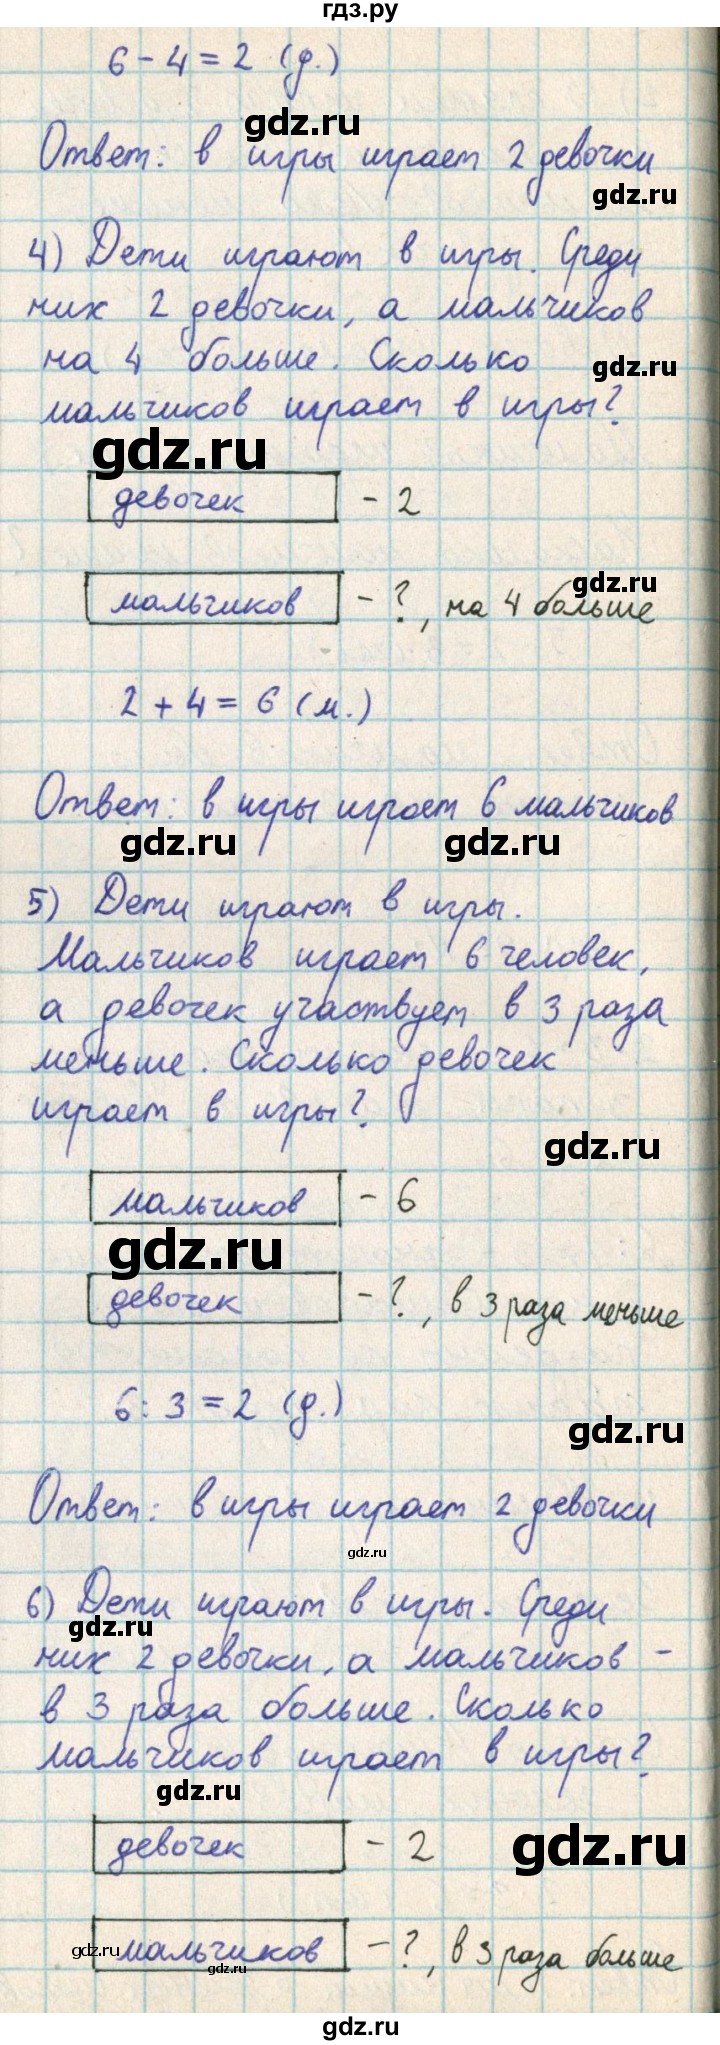 гдз.ру
6 - 4 = 2 (д.)
gdz.ru
Ответ: в игры играет 2 девочки
gdz.ru
4) Дети играют в игры. Среди
них 2 девочки, а мальчиков
на 4 больше. Сколько
gdz.ru
мальчиков играет в игры?
gdz.ru
девочек - 2
gdz.ru
мальчиков - ?, на 4 больше
2 + 4 = 6 (м.)
Ответ: в игры играет 6 мальчиков
gdz.ru gdz.ru
5) Дети играют в игры.
Мальчиков играет 6 человек,
а девочек участвует в 3 раза
меньше. Сколько девочек
играет в игры?
gdz.ru
мальчиков - 6
gdz.ru
девочек - ?, в 3 раза меньше
6 : 3 = 2 (д.)
gdz.ru
Ответ: в игры играет 2 девочки
gdz.ru
6) Дети играют в игры. Среди
gdz.ru
них 2 девочки, а мальчиков -
в 3 раза больше. Сколько
мальчиков играет в игры?
gdz.ru
девочек - 2
gdz.ru
мальчиков - ?, в 3 раза больше
gdz.ru
gdz.ru
gdz.ru